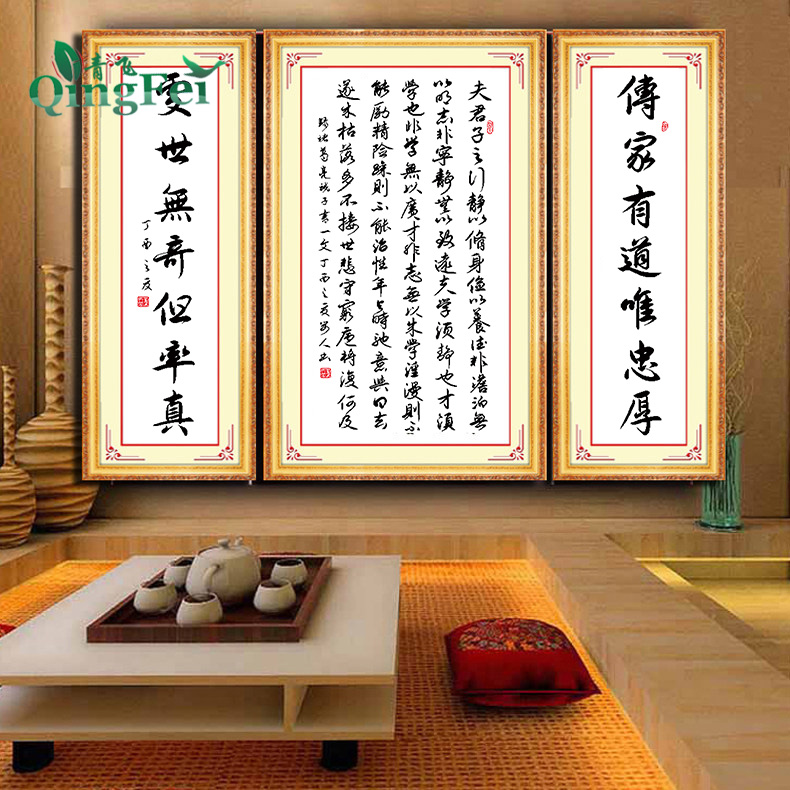 青飞
QingFei
傳家有道唯忠厚
夫君子之行靜以脩身儉以養德非澹泊無
以明志非寧靜無以致遠夫學須靜也才須
學也非學無以廣才非志無以成學淫漫則不
能勵精險躁則不能治性年與時馳意與日去
遂成枯落多不接世悲守窮廬將復何及
諸葛亮誡子書一文丁酉之夏
處世無奇但率真
丁酉之夏